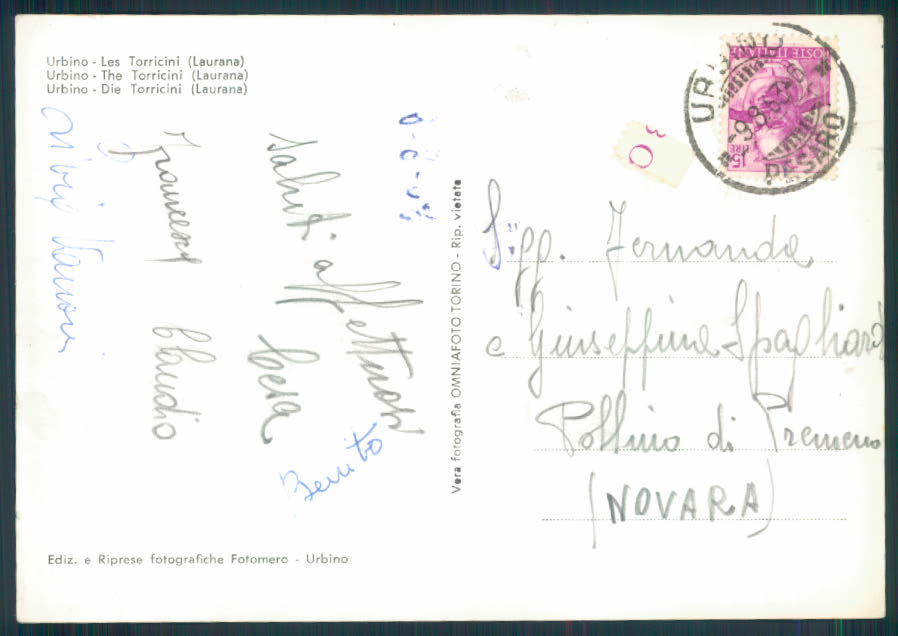 Urbino - Les Torricini (Laurana)
Urbino - The Torricini (Laurana)
Urbino - Die Torricini (Laurana)
Saluti affettuosi
Francesco Claudio
Benito
Vera fotografia OMNIAFOTO TORINO - Rip. vietata
Ediz. e Riprese fotografiche Fotomero - Urbino
URBINO
PESARO
POSTE ITALIANE
15 LIRE
Sigg. Fernanda
e Giuseppina Spagliardi
Pollino di Premeno
(NOVARA)